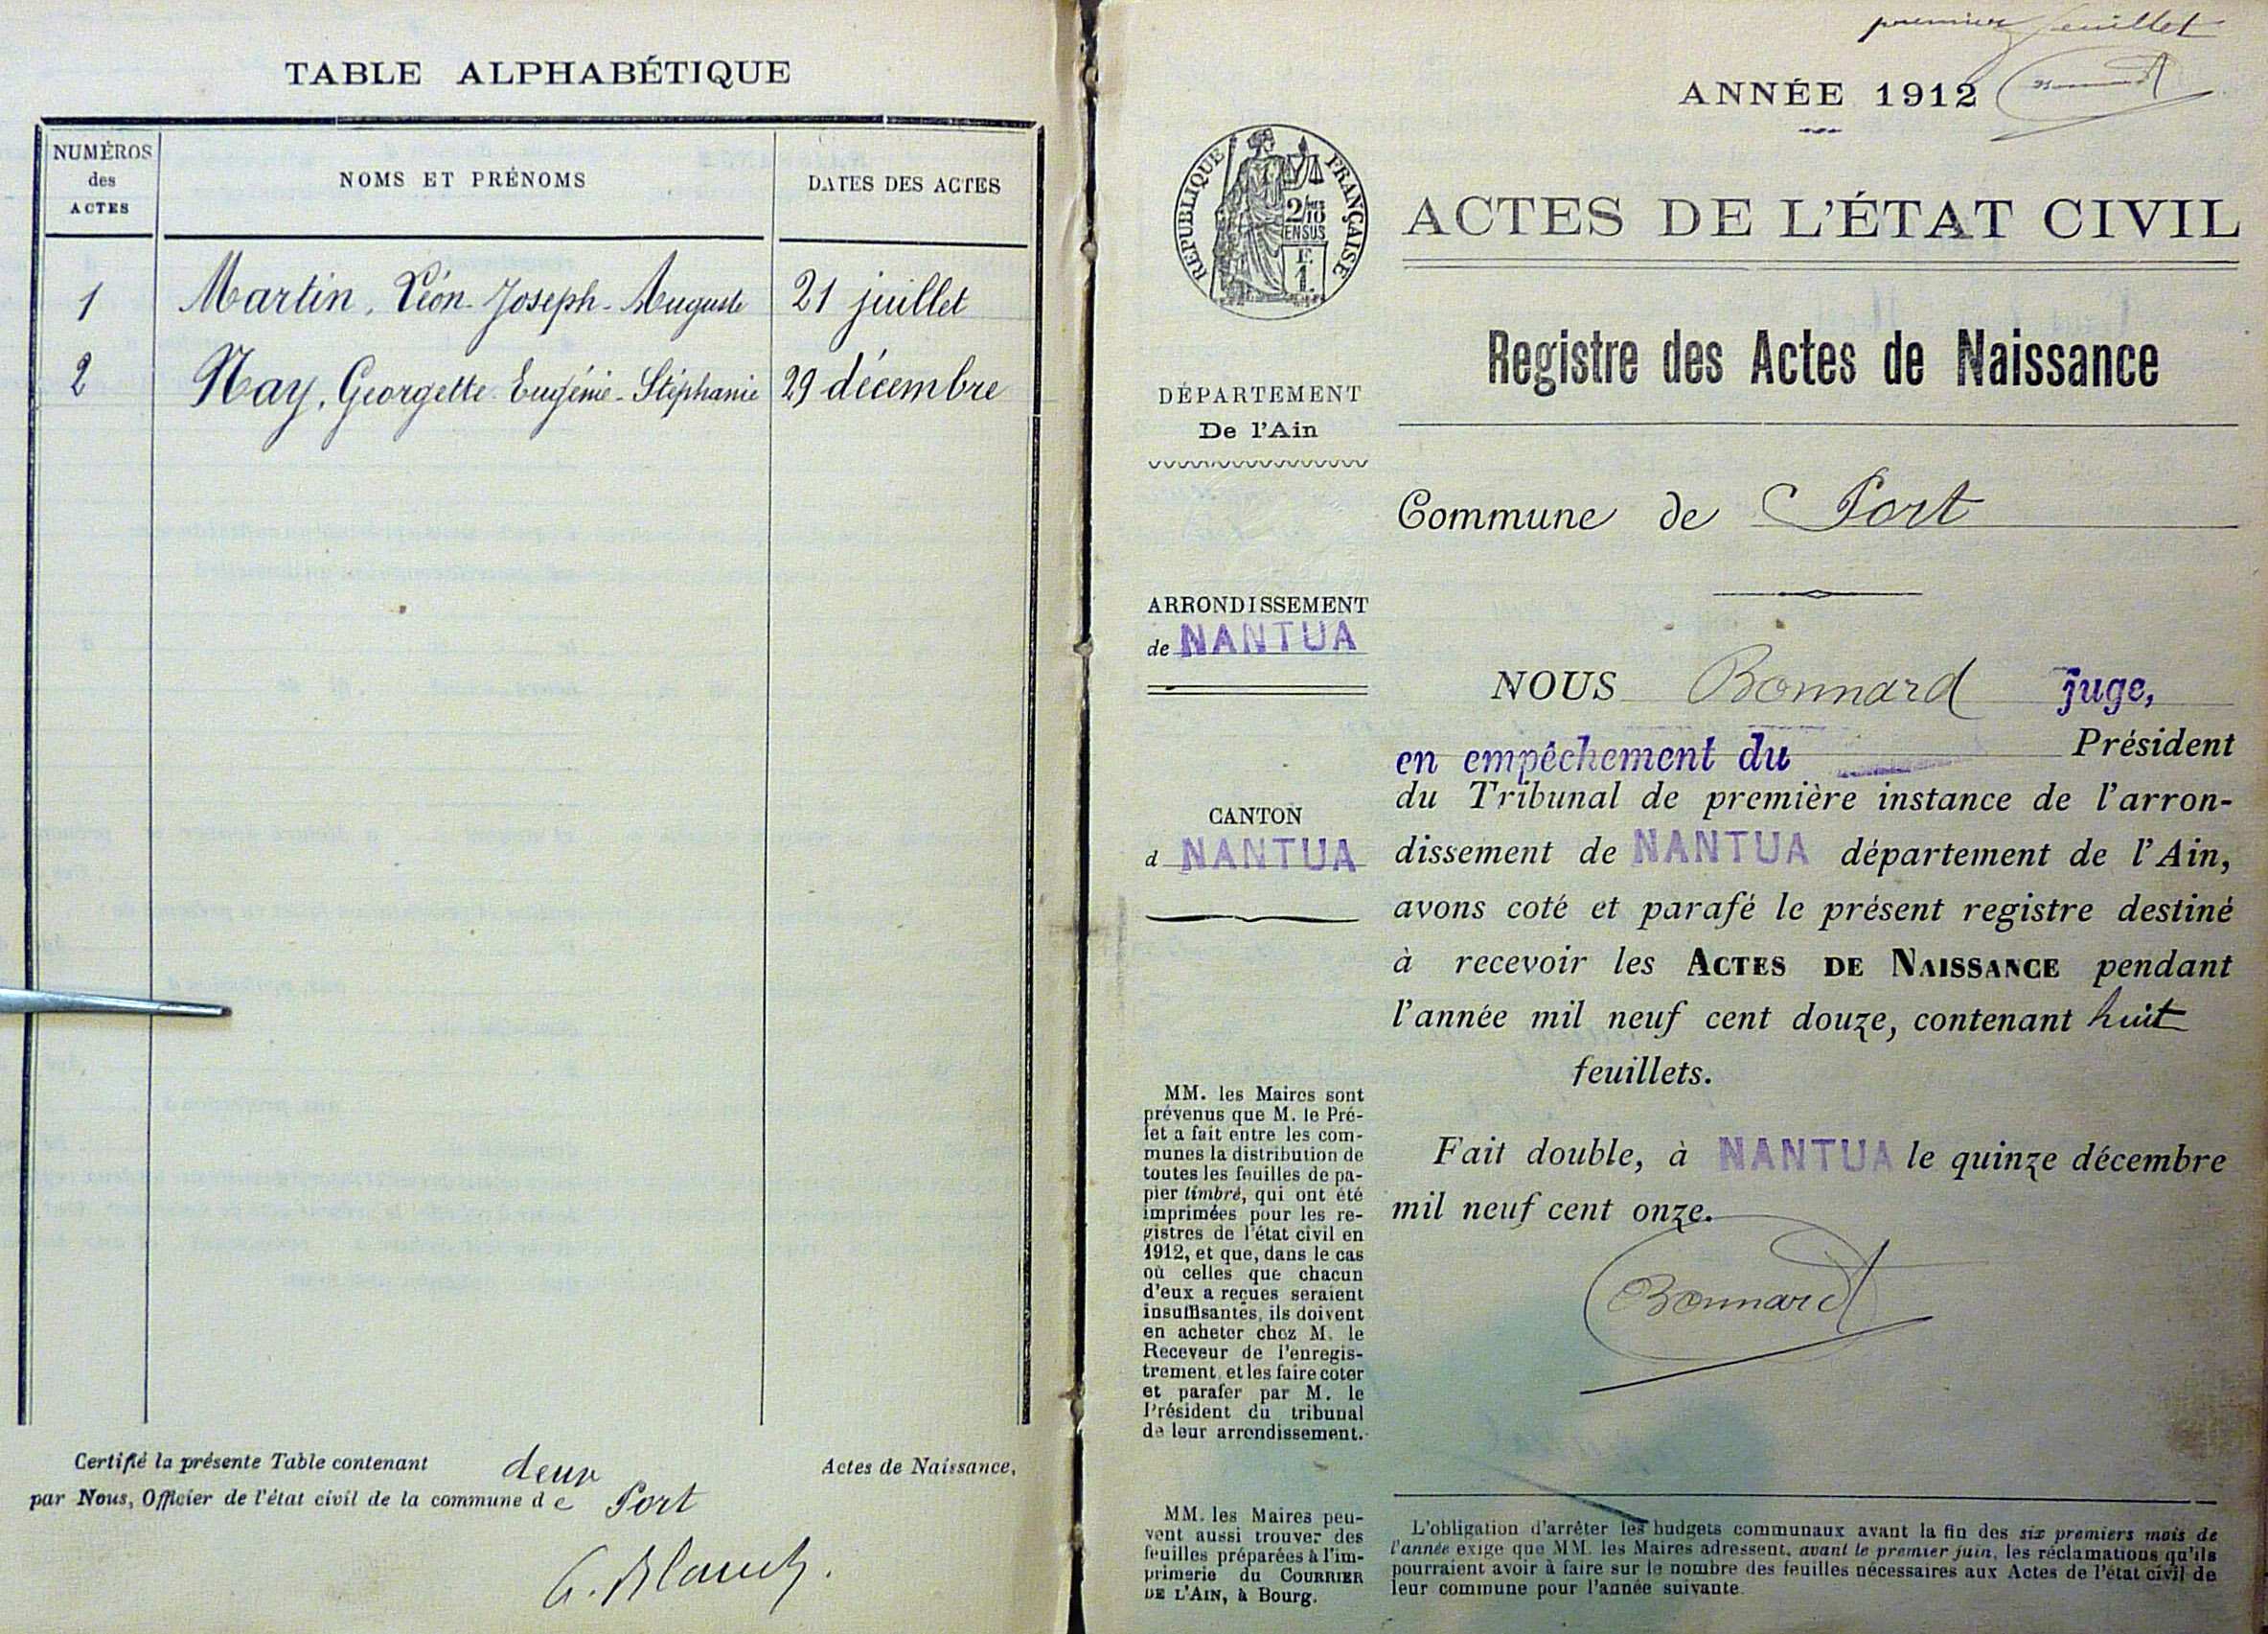 TABLE ALPHABÉTIQUE
NUMÉROS
des
ACTES
NOMS ET PRÉNOMS
DATES DES ACTES
1 Martin, Léon-Joseph-Auguste 21 juillet
2 Nay, Georgette-Eugénie-Stéphanie 29 décembre
Certifié la présente Table contenant deux Actes de Naissance,
par Nous, Officier de l'état civil de la commune de Port
premier feuillet
ANNÉE 1912
RÉPUBLIQUE FRANÇAISE
2/10
EN SUS
F.
1.
ACTES DE L'ÉTAT CIVIL
Registre des Actes de Naissance
DÉPARTEMENT
De l'Ain
Commune de Port
ARRONDISSEMENT
de NANTUA
CANTON
d NANTUA
MM. les Maires sont
prévenus que M. le Pré-
fet a fait entre les com-
munes la distribution de
toutes les feuilles de pa-
pier timbré, qui ont été
imprimées pour les re-
gistres de l'état civil en
1912, et que, dans le cas
où celles que chacun
d'eux a reçues seraient
insuffisantes, ils doivent
en acheter chez M. le
Receveur de l'enregis-
trement, et les faire coter
et parafer par M. le
Président du tribunal
de leur arrondissement.
MM. les Maires peu-
vent aussi trouver des
feuilles préparées à l'im-
primerie du COURRIER
DE L'AIN, à Bourg.
NOUS Bonnard juge,
en empêchement du Président
du Tribunal de première instance de l'arron-
dissement de NANTUA département de l'Ain,
avons coté et parafé le présent registre destiné
à recevoir les ACTES DE NAISSANCE pendant
l'année mil neuf cent douze, contenant huit
feuillets.
Fait double, à NANTUA le quinze décembre
mil neuf cent onze.
Bonnard
L'obligation d'arrêter les budgets communaux avant la fin des six premiers mois de
l'année exige que MM. les Maires adressent, avant le premier juin, les réclamations qu'ils
pourraient avoir à faire sur le nombre des feuilles nécessaires aux Actes de l'état civil de
leur commune pour l'année suivante.